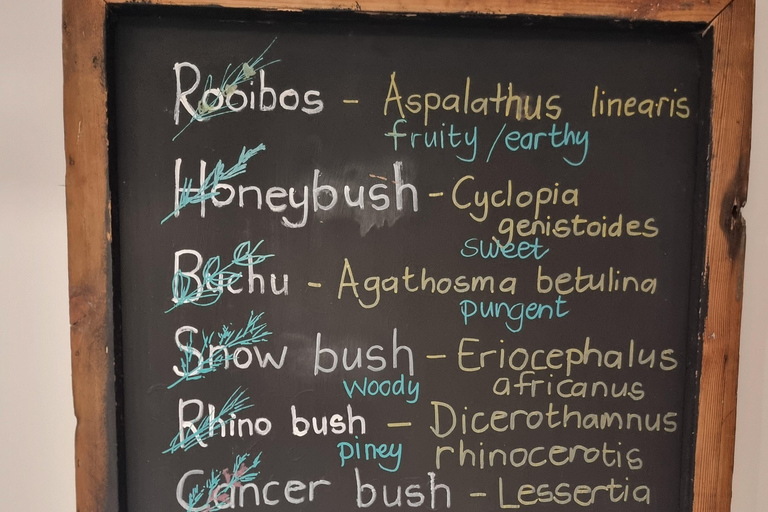 Rooibos - Aspalathus linearis
fruity/earthy
Honeybush - Cyclopia
genistoides
sweet
Buchu - Agathosma betulina
pungent
Snow bush - Eriocephalus
woody africanus
Rhino bush - Dicerothamnus
piney rhinocerotis
Cancer bush - Lessertia